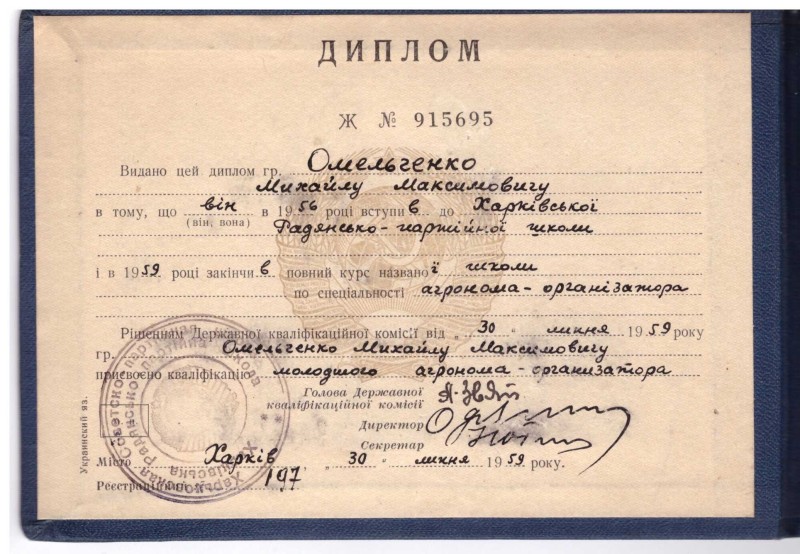 ДИПЛОМ
Ж № 915695
Видано цей диплом гр. Омельченко
Михайлу Максимовичу
в тому, що він в 1956 році вступив до Харківської
(він, вона)
Радянсько-партійної школи
і в 1959 році закінчив повний курс названої школи
по спеціальності агронома-організатора
Рішенням Державної кваліфікаційної комісії від „30" липня 1959 року
гр. Омельченко Михайлу Максимовичу
присвоєно кваліфікацію молодшого агронома-організатора
Голова Державної
кваліфікаційної комісії
Директор
Секретар
Місто Харків „30" липня 1959 року.
Реєстраційний № 197
Украинский яз.